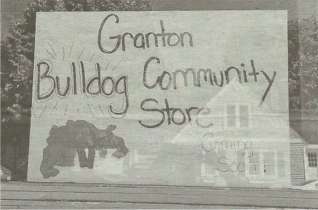 Granton
Bulldog Community
Store
Coming